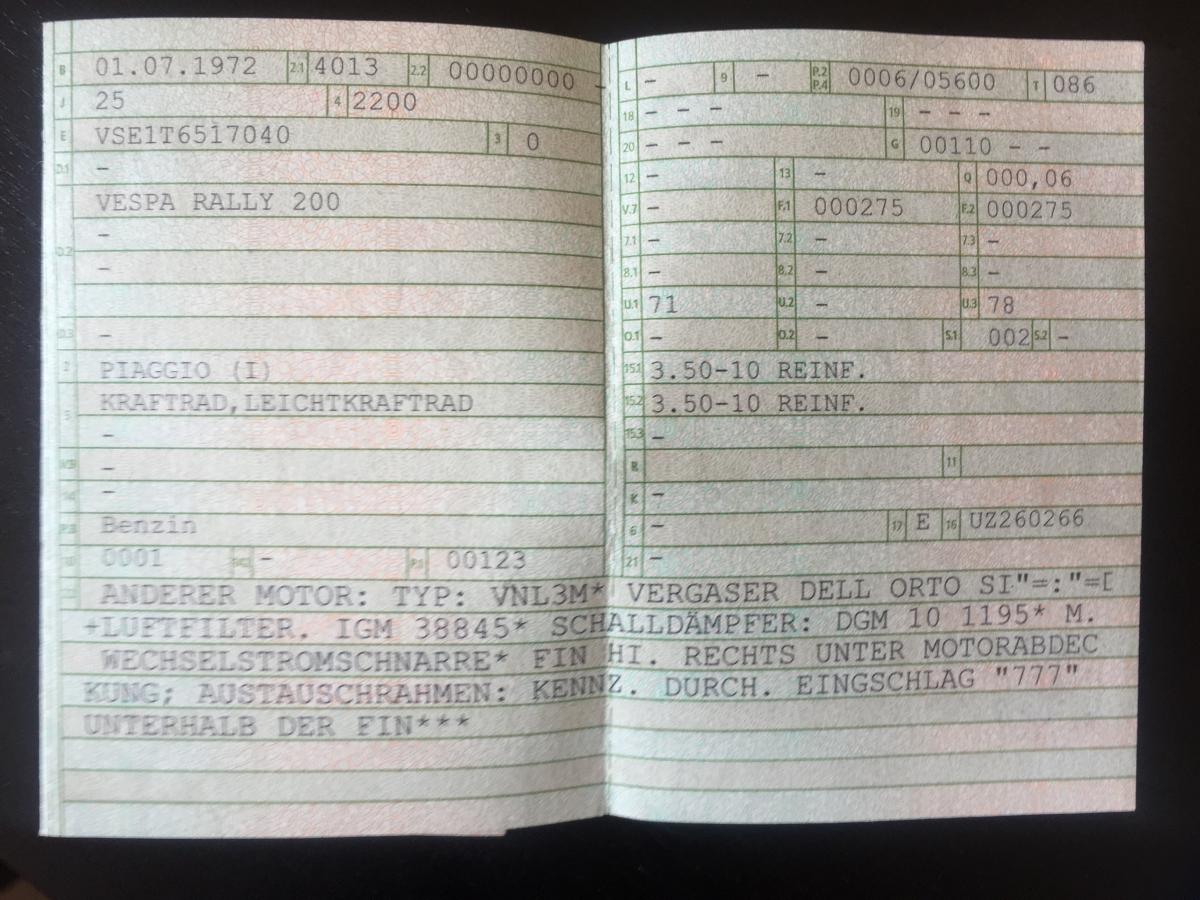 B 01.07.1972 2.1 4013 2.2 00000000 -
J 25 4 2200
E VSE1T6517040 3 0
D.1 -
VESPA RALLY 200
D.2 -
-
D.3 -
2 PIAGGIO (I)
5 KRAFTRAD,LEICHTKRAFTRAD
-
V.9 -
14 -
P.3 Benzin
10 0001 14.1 - P.1 00123
L - 9 - P.2 P.4 0006/05600 T 086
18 - - - 19 - - -
20 - - - G 00110 - -
12 - 13 - Q 000,06
V.7 - F.1 000275 F.2 000275
7.1 - 7.2 - 7.3 -
8.1 - 8.2 - 8.3 -
U.1 71 U.2 - U.3 78
O.1 - O.2 - S.1 002 S.2 -
15.1 3.50-10 REINF.
15.2 3.50-10 REINF.
15.3 -
R 11
K -
6 - 17 E 16 UZ260266
21 -
ANDERER MOTOR: TYP: VNL3M* VERGASER DELL ORTO SI"=:"=[
+LUFTFILTER. IGM 38845* SCHALLDÄMPFER: DGM 10 1195* M.
WECHSELSTROMSCHNARRE* FIN HI. RECHTS UNTER MOTORABDEC
KUNG; AUSTAUSCHRAHMEN: KENNZ. DURCH. EINGSCHLAG "777"
UNTERHALB DER FIN***